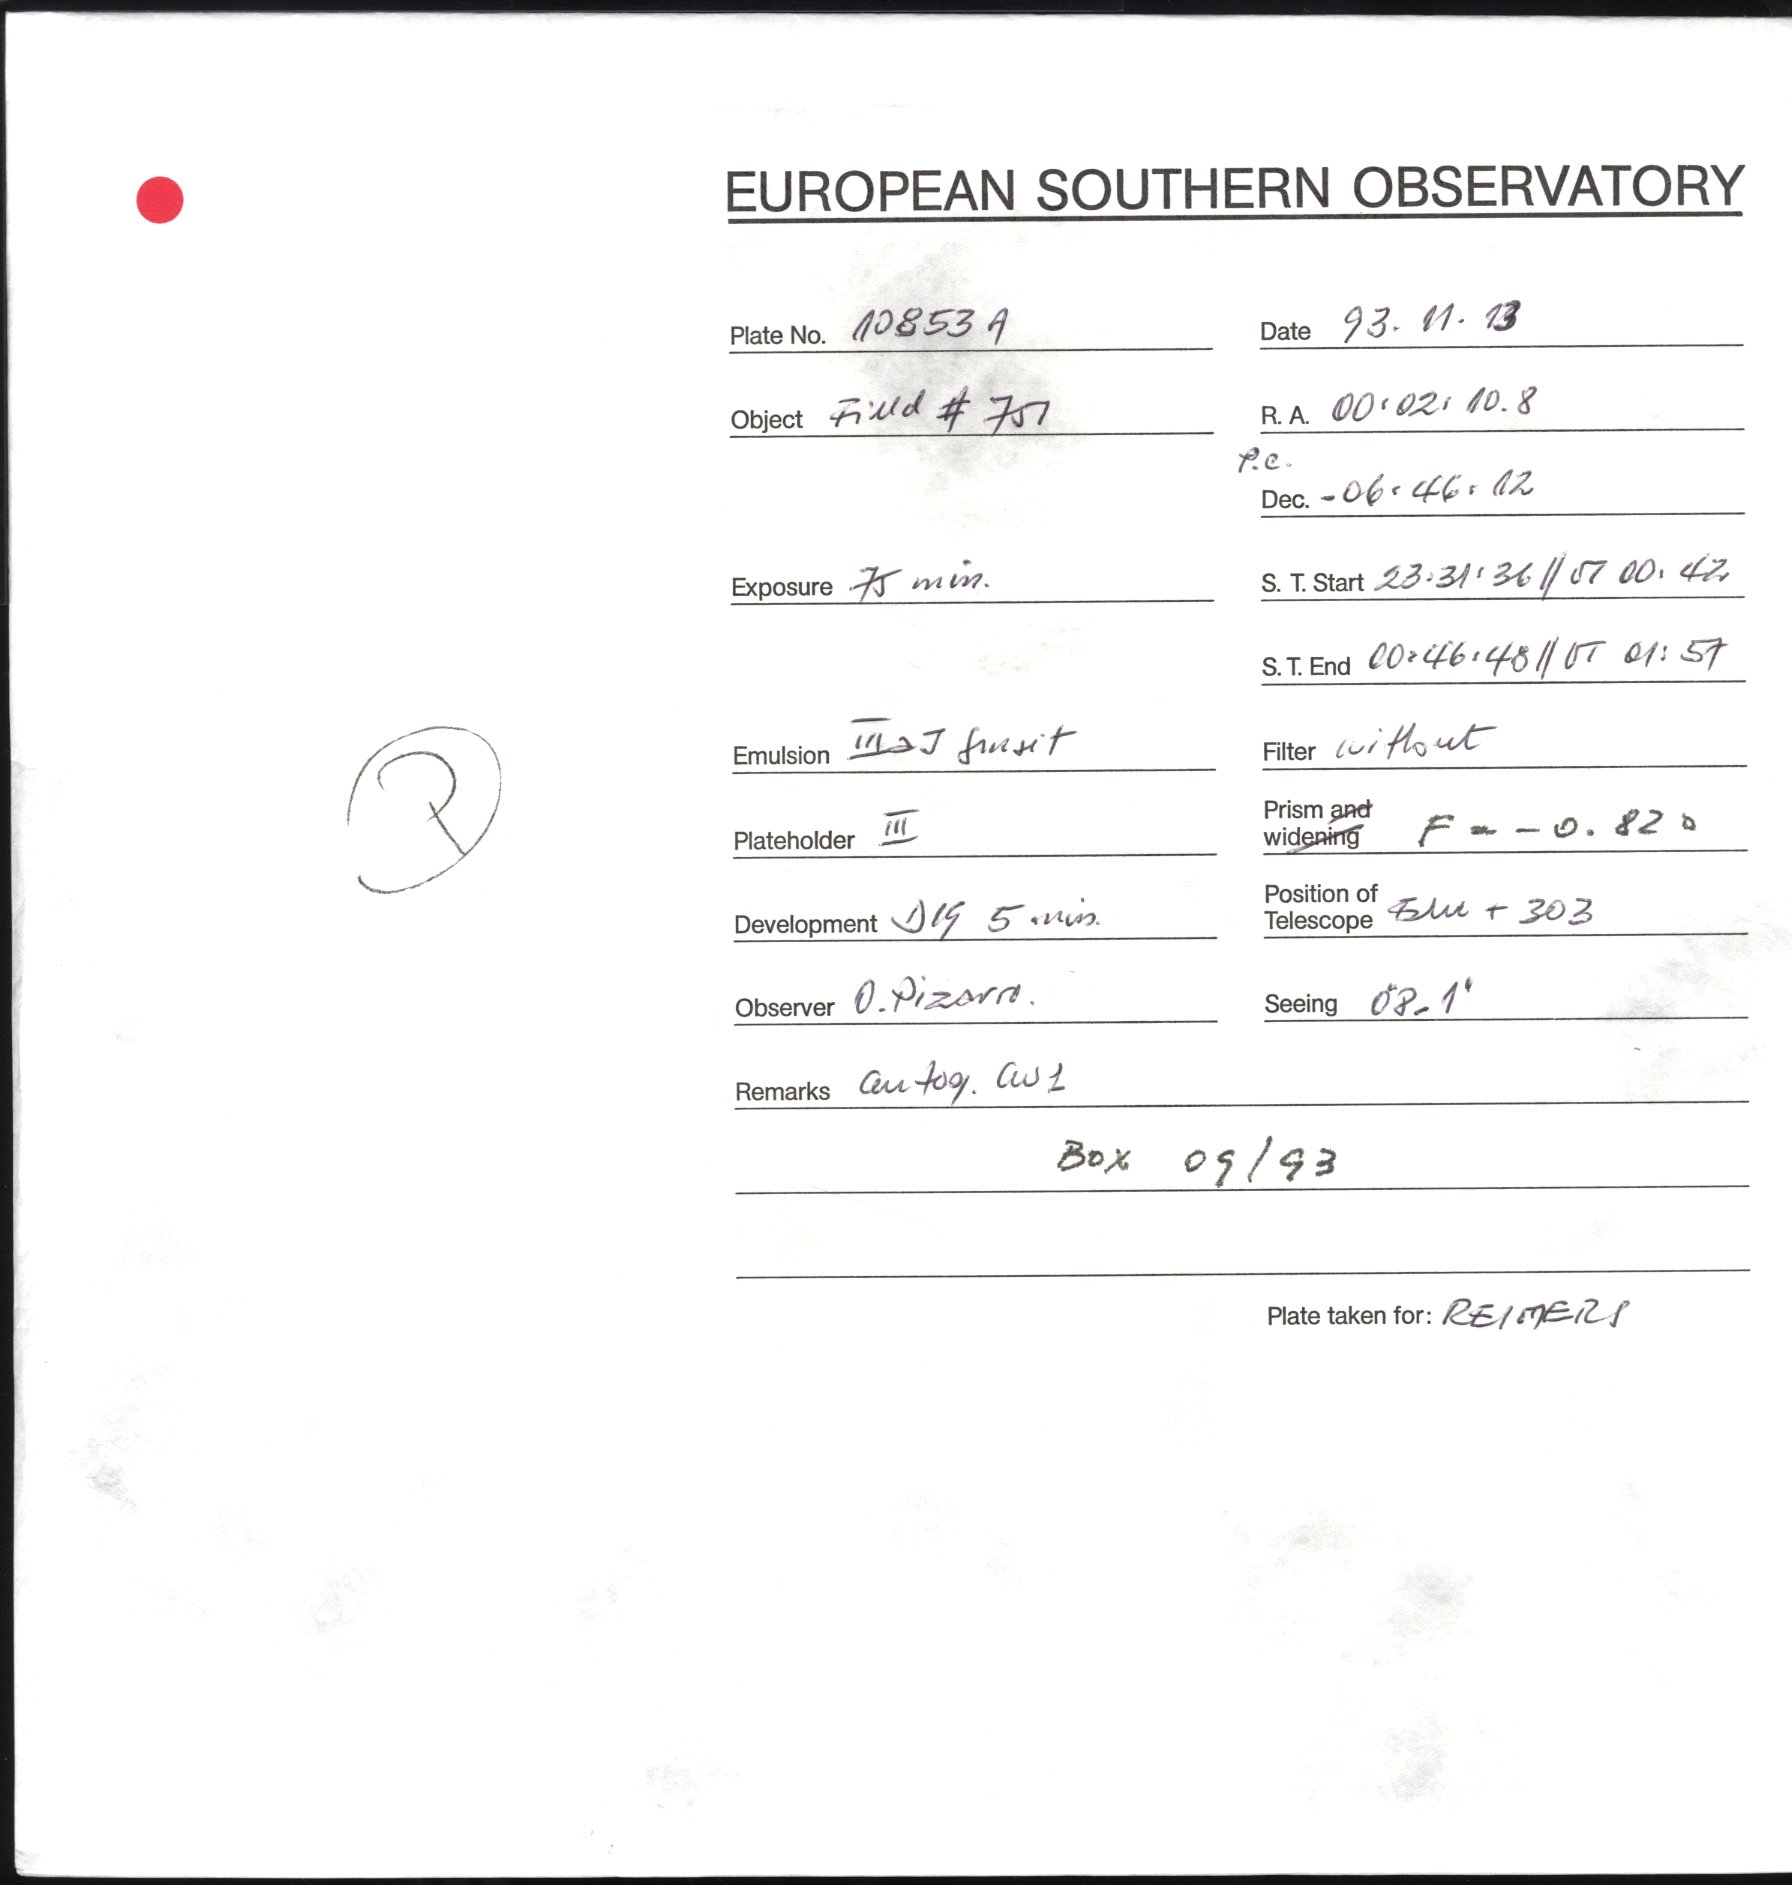 EUROPEAN SOUTHERN OBSERVATORY
Plate No. 10853 A
Date 93. 11. 13
Object Field # 751
R. A. 00:02:10.8
P.c.
Dec. -06:46:12
Exposure 75 min.
S. T. Start 23:31:36 // UT 00:42
S. T. End 00:46:48 // UT 01:57
Emulsion III a J
Filter without
Plateholder III
Prism and widening F = - 0. 820
Development D19 5 min.
Position of Telescope + 303
Observer O. Pizarro.
Seeing 08-1"
Remarks
Box 09/93
Plate taken for: REIMERS